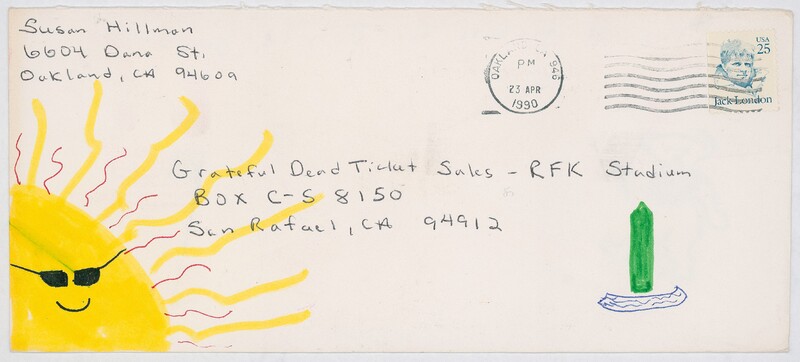 Susan Hillman
6604 Dana St.
Oakland, CA 94609
OAKLAND CA 946
PM
23 APR
1990
USA
25
Jack London
Grateful Dead Ticket Sales - RFK Stadium
BOX C-S 8150
San Rafael, CA 94912